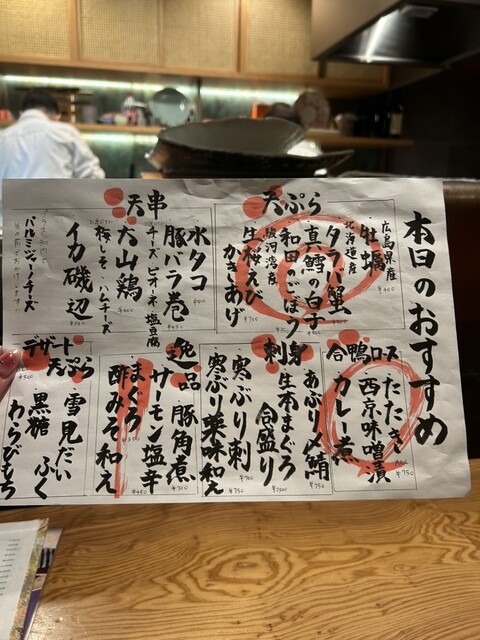 本日のおすすめ
天ぷら
広島県産
牡蠣
北海道産
タラバ蟹
真鱈の白子
和田ごぼう
駿河湾産
生桜えび
かきあげ
天串
水タコ
豚バラ巻
チーズ・ピオーネ・塩昆布
大山鶏
梅しそ・ハムチーズ
イカ磯辺
パルミジャーノチーズ
合鴨ロース
たたき
西京味噌漬
カレー煮
¥750
刺身
あぶり〆鯖
¥750
生本まぐろ
合盛り
寒ぶり刺
寒ぶり薬味和え
逸品
豚角煮
サーモン塩辛
まぐろ
酢みそ和え
デザート
天ぷら
雪見だいふく
黒糖
わらびもち